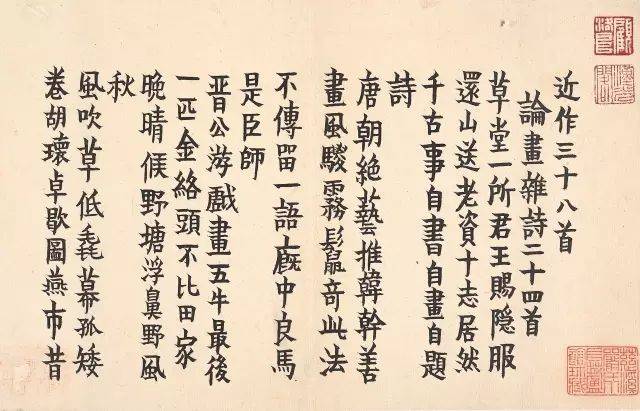 近作三十八首
論畫雜詩二十四首
草堂一所君王賜隐服
還山送老資十志居然
千古事自書自畫自題
詩
唐朝絶藝推韓幹善
畫風騣霧鬣竒此法
不傳留一語廐中良馬
是臣師
晋公游戲畫五牛最後
一匹金絡頭不比田家
晚晴候野塘浮鼻野風
秋
風吹草低毳幕孤矮
卷胡瓌卓歇圖燕市昔